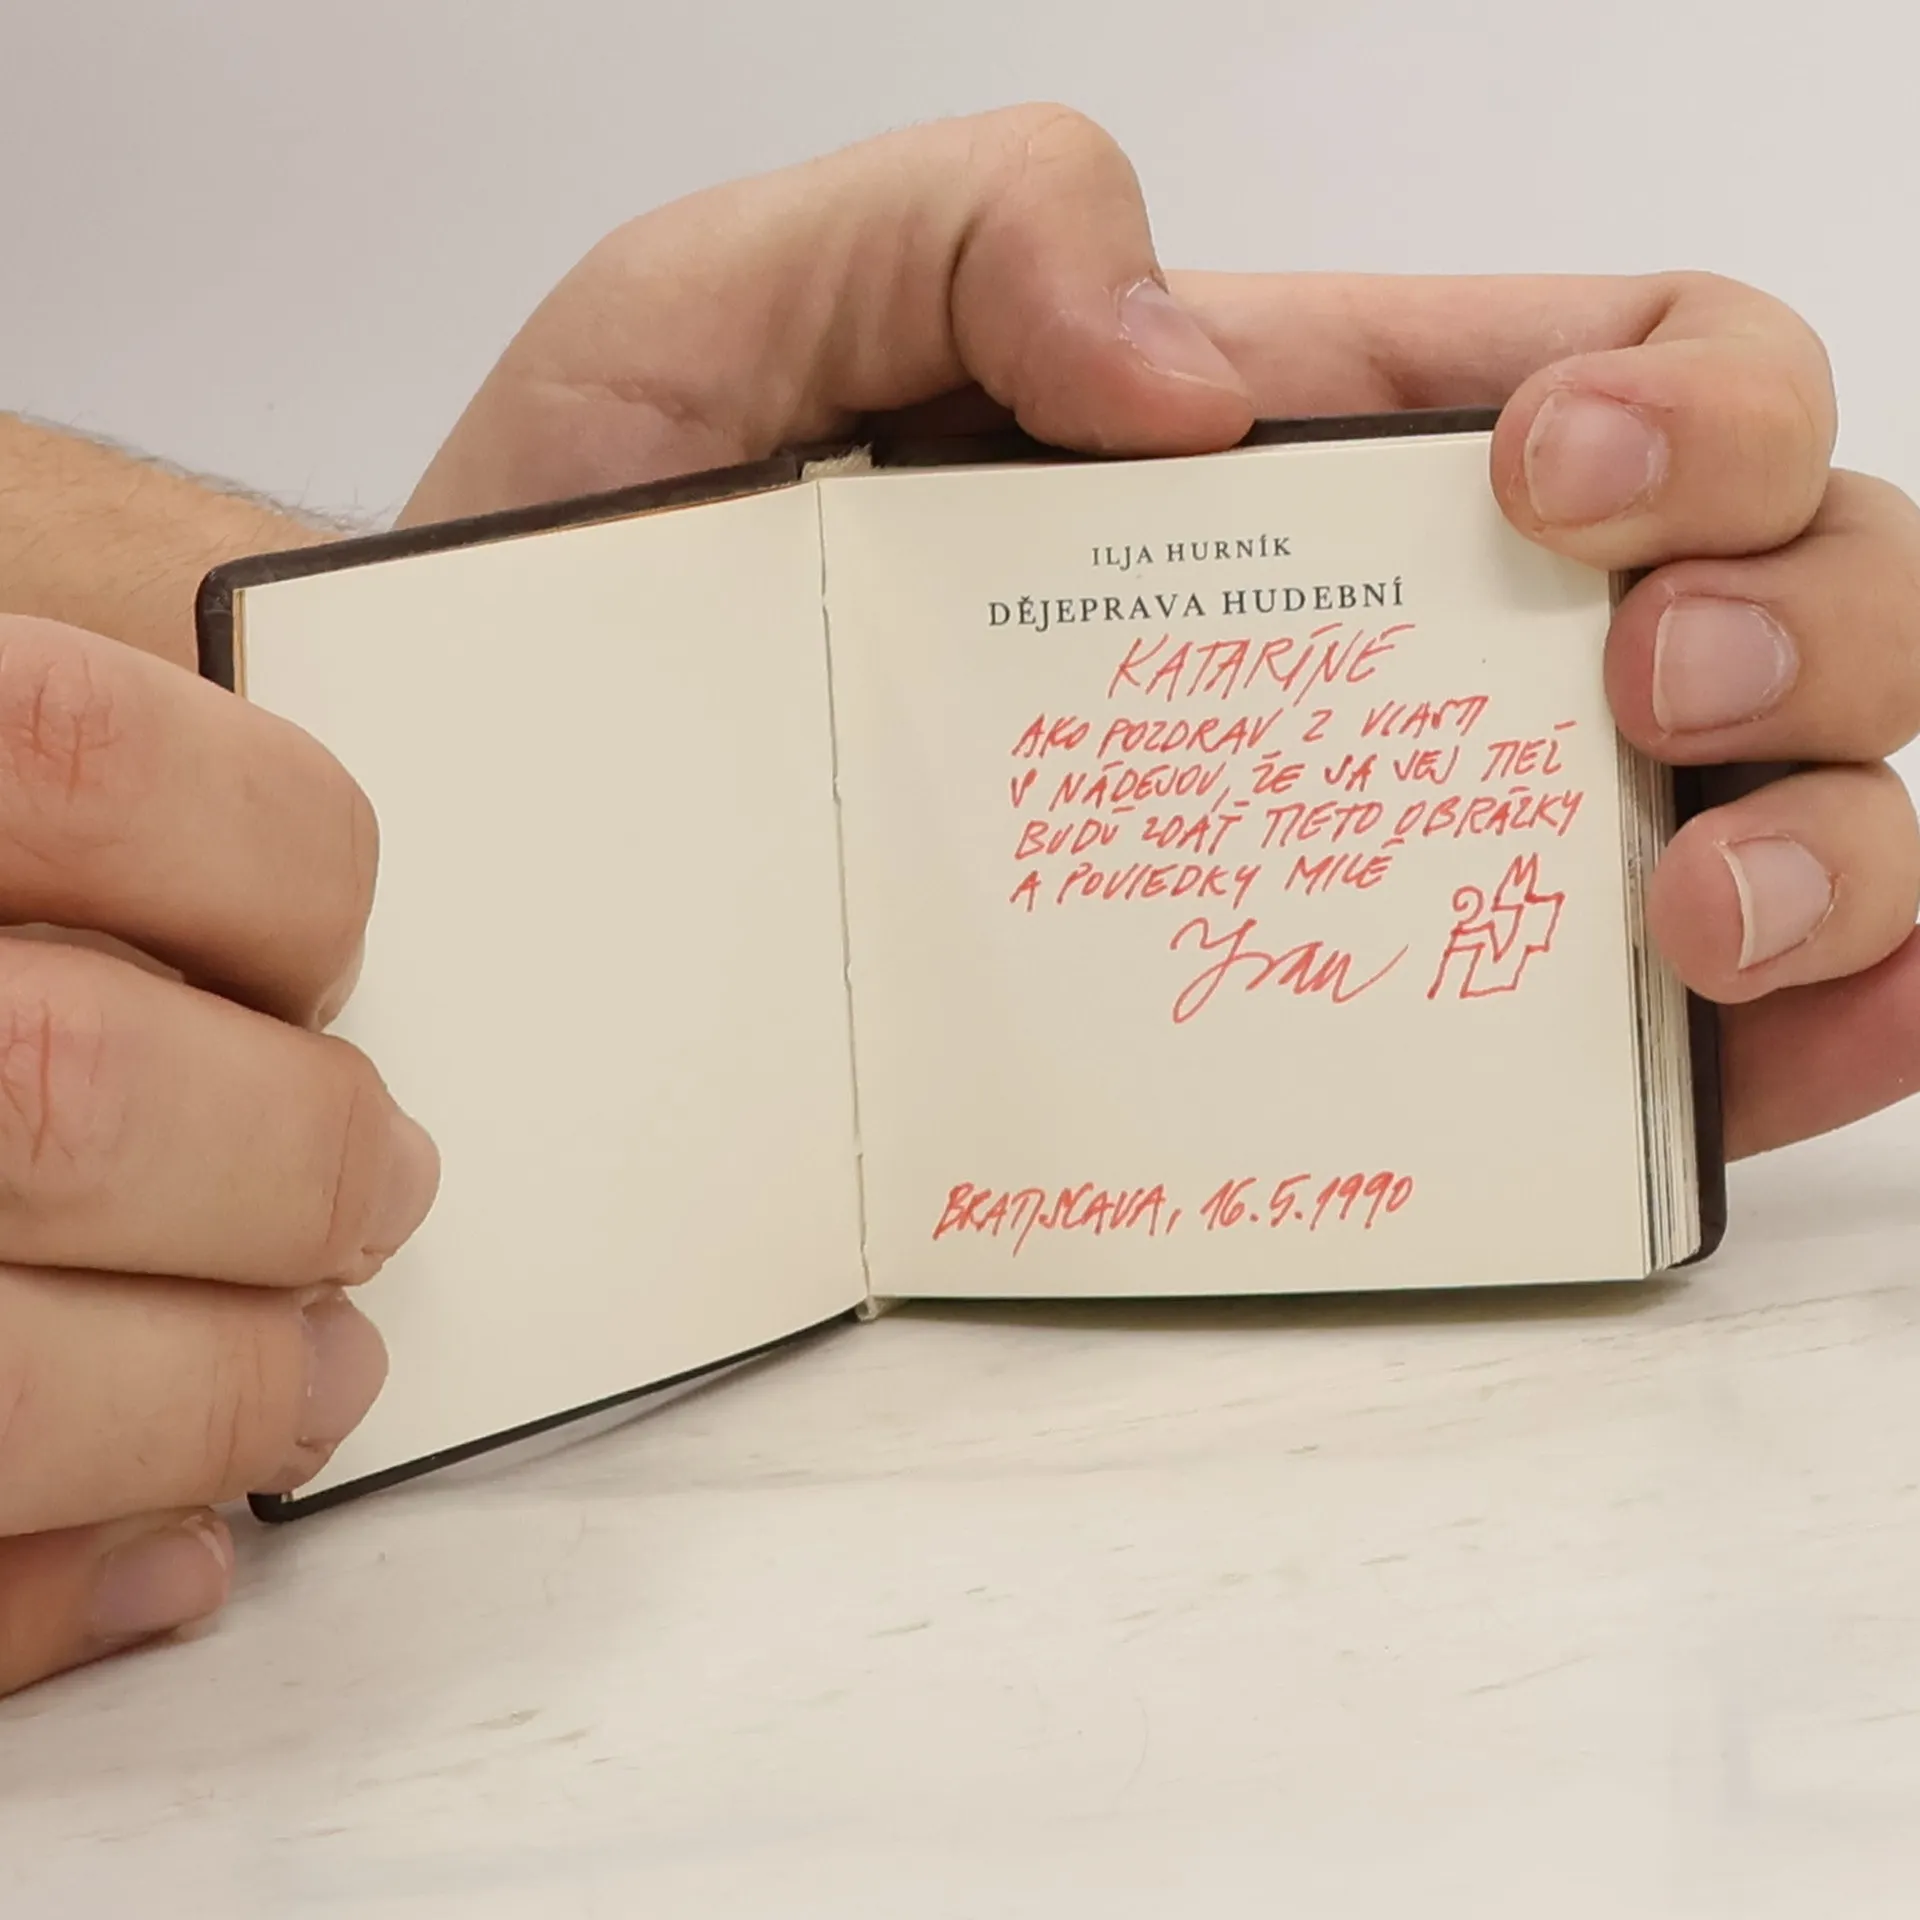 ILJA HURNÍK
DĚJEPRAVA HUDEBNÍ
KATARÍNE
AKO POZDRAV Z VLASTI
V NÁDEJOV, ŽE SA JEJ TIEŽ
BUDÚ ZDAŤ TIETO OBRÁZKY
A POVIEDKY MILÉ
Yvan
BRATISLAVA, 16.5.1990